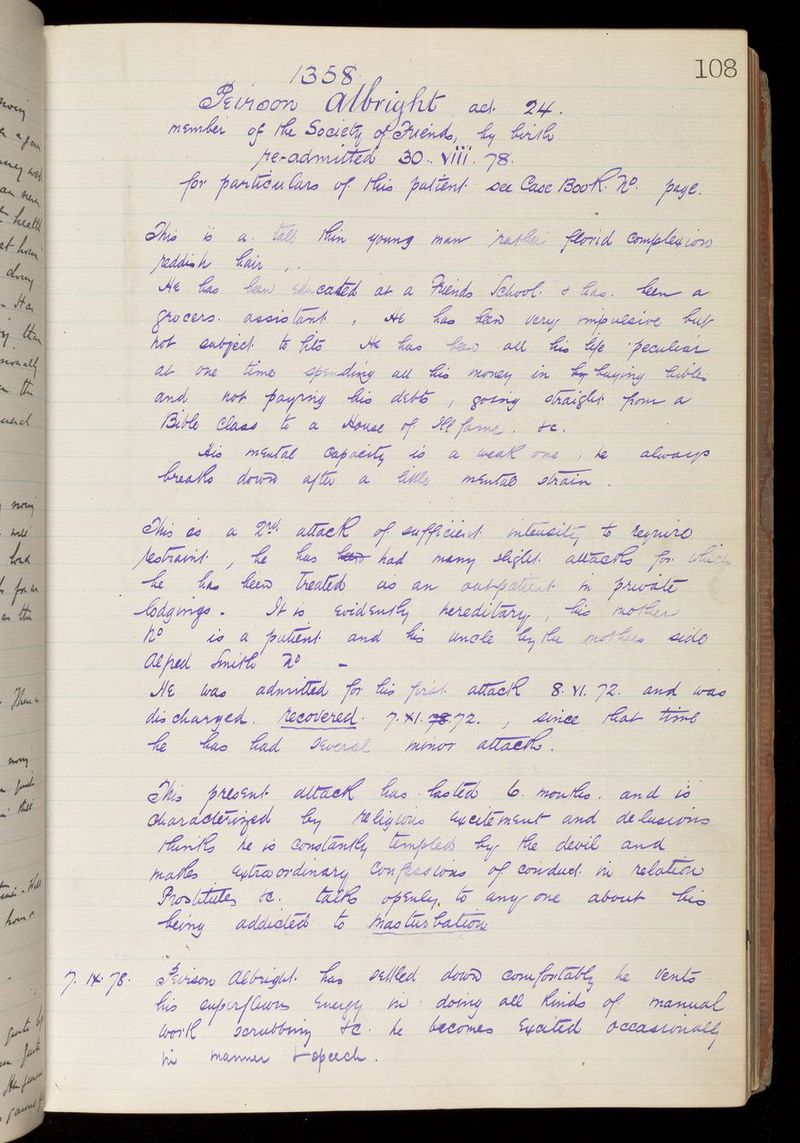 108
1358.
Peirson Albright aet. 24.
member of the Society of Friends, by birth
re-admitted 30. viii. 78.
for particulars of this patient see Case Book. No. page.
This is a tall thin young man rather florid complexion
reddish hair,.
He has been educated at a Friends School. & has been a
grocers assistant, He has been very impulsive but
not subject to fits He has been all his life peculiar
at one time spending all his money in by buying bibles
and not paying his debts, going straight from a
Bible Class to a House of Ill fame. &c.
His mental capacity is a weak one, he always
breaks down after a little mental strain.
This is a 2nd attack of sufficient intensity to require
restraint, he has been had many slight attacks for which
he has been treated as an outpatient in private
lodgings - It is evidently hereditary, his mother
No is a patient and his uncle by the mothers side
Alfred Smith No -
He was admitted for his first attack 8. VI. 72. and was
discharged. Recovered. 7. XI. 78 72., since that time
he has had several minor attacks.
This present attack has lasted 6. months. and is
characterized by religious excitement and delusions
thinks he is constantly tempted by the devil and
makes extraordinary confessions of conduct in relation
Prostitutes &c. talks openly to any one about his
being addicted to Masturbation
7. IX. 78. Peirson Albright has settled down comfortably he vents
his superfluous energy in doing all kinds of manual
work scrubbing &c. he becomes excited occassionally
in manner & speech.